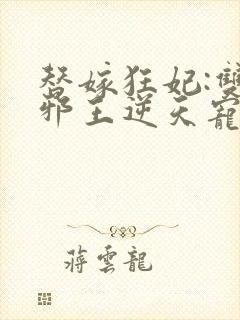 替嫁狂妃:雙
邪王逆天寵
蔣雲龍